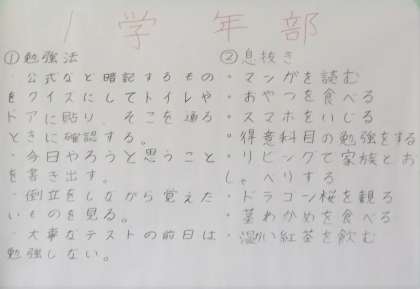 1学年部
①勉強法
・公式など暗記するもの
をクイズにしてトイレや
ドアに貼り、そこを通る
ときに確認する。
・今日やろうと思うこと
を書き出す。
・倒立をしながら覚えた
いものを見る。
・大事なテストの前日は
勉強しない。
②息抜き
・マンガを読む
・おやつを食べる
・スマホをいじる
・得意科目の勉強をする
・リビングで家族とお
しゃべりする
・ドラゴン桜を観る
・茎わかめを食べる
・温かい紅茶を飲む